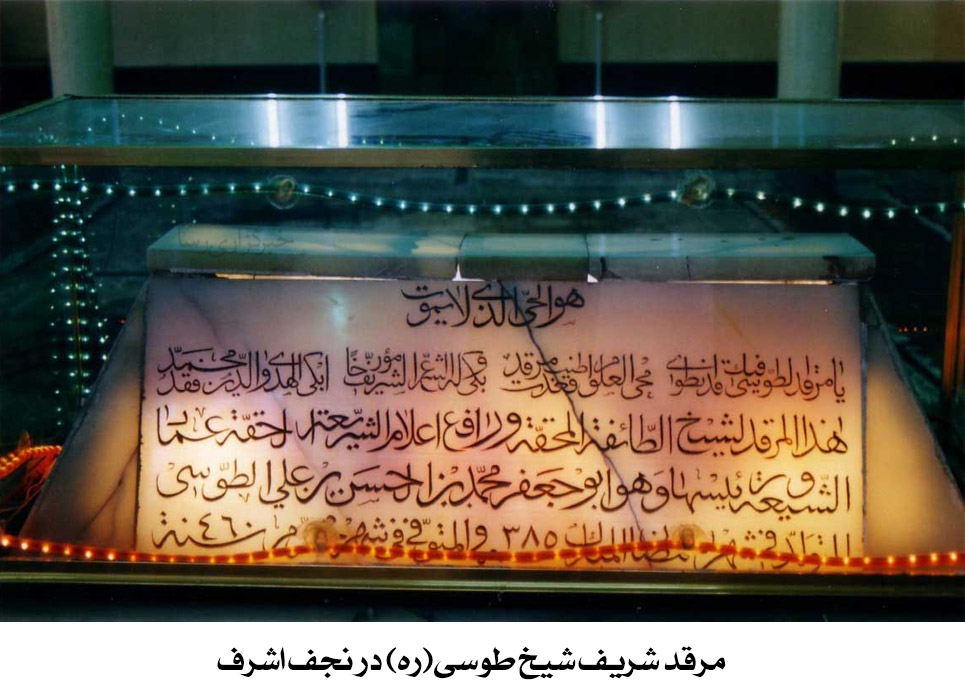 هو الحيّ الذي لا يموت
يا مرقد الطوسي فيك قد انطوى محي العلوم فعدت اطيب مرقد
بكى له الشرع الشريف مؤرّخا ابكي الهدى والدين فقد محمد
هذا المرقد لشيخ الطائفة المحقة ورافع اعلام الشريعة الحقة عماد
الشيعة ورئيسها وهو ابو جعفر محمد بن الحسن بن علي الطوسي
المتولد في شهر المبارك ٣٨٥ والمتوفى في شهر سنة ٤٦٠
مرقد شریف شیخ طوسی(ره) در نجف اشرف